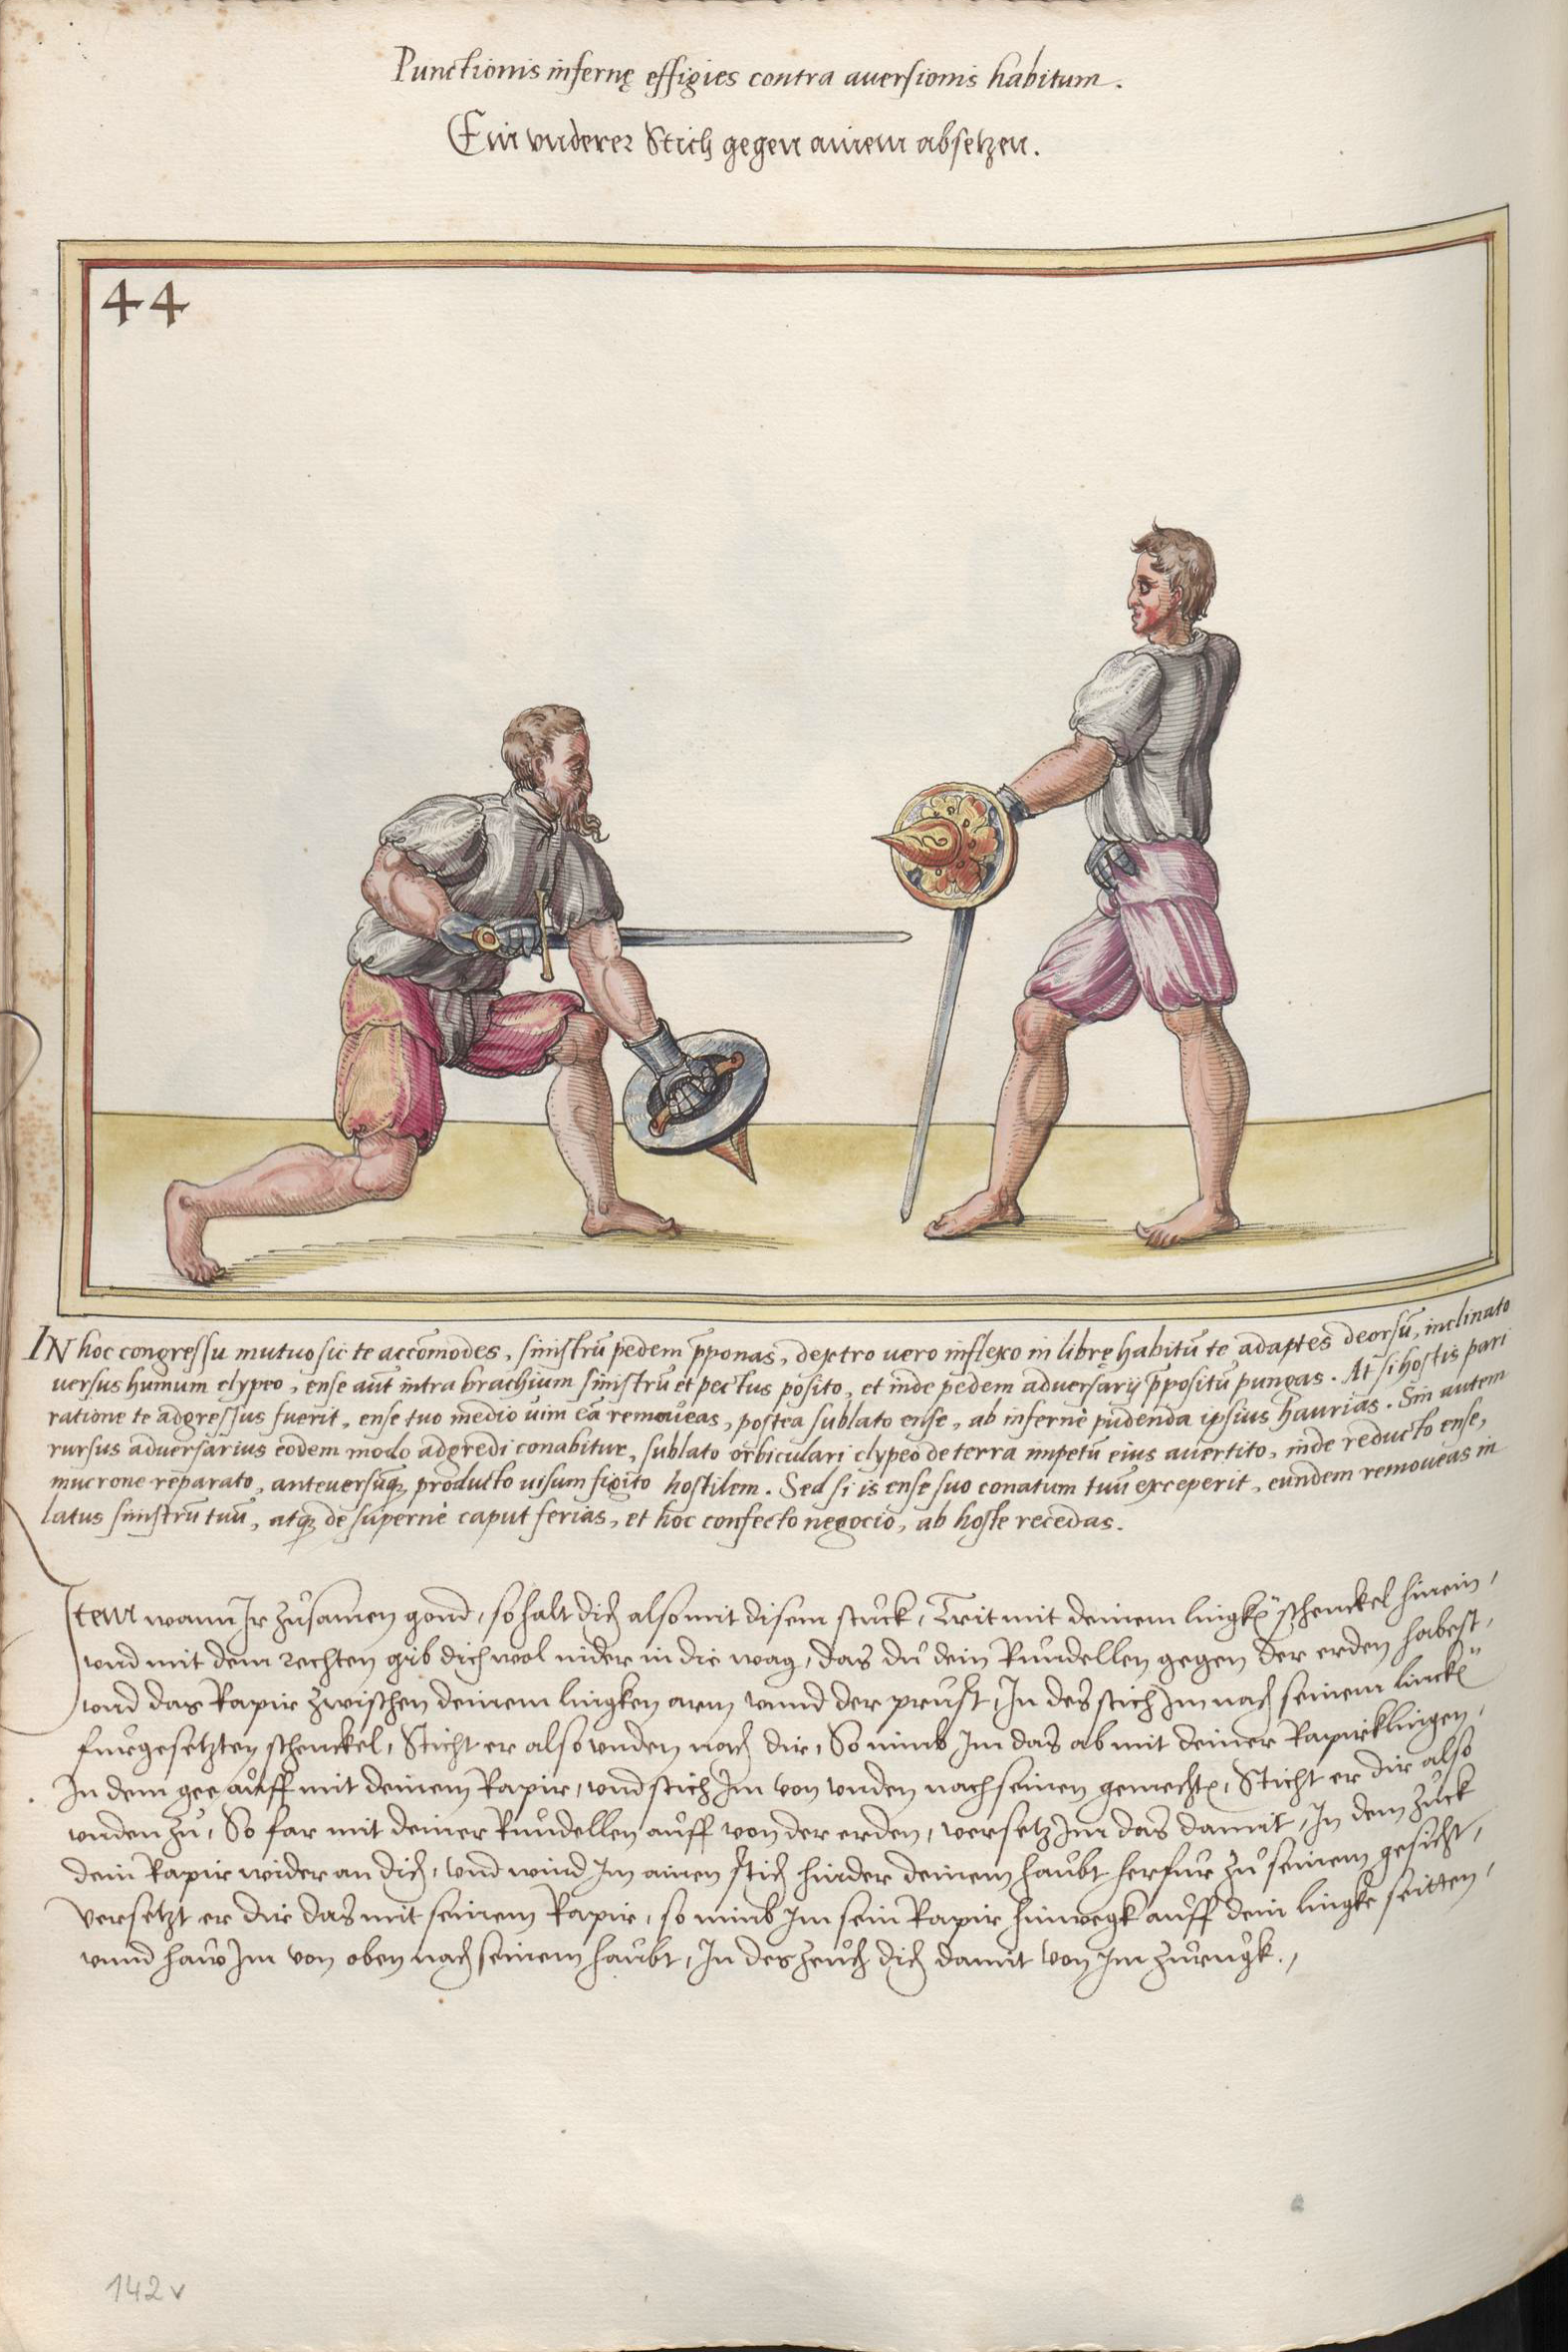 Punctionis infernę effigies contra aversionis habitum.
Ein vnderer Stich gegen ainem absetzen.
44
IN hoc congressu mutuo sic te accōmodes, sinistrū pedem p̄ponas, dextro uero inflexo in librę habitū te adaptes deorsū, inclinato
uersus humum clypeo, ense aūt intra brachium sinistrū et pectus posito, et inde pedem adversarij p̄positū pungas. At si hostis pari
ratione te adgressus fuerit, ense tuo medio uim eā remoueas, postea sublato ense, ab infernè pudenda ipsius haurias. Sin autem
rursus adversarius eodem modo adgredi conabitur, sublato orbiculari clypeo de terra impetū eius auertito, inde reducto ense,
mucrone reparato, anteuersūq; producto uisum figito hostilem. Sed si is ense suo conatum tuū exceperit, eundem remoueas in
latus sinistrū tuū, atq; de supernè caput ferias, et hoc confecto negocio, ab hoste recedas.
Item wann Ir zůsamen gond, so halt dich also mit disem stuck, Trit mit deinem lingkē schenckel hinein,
vnd mit dem rechten gib dich wol nider in die wag, das du dein Rundellen gegen der erden habest,
vnd das Rapir zwischen deinem lingken arm vnnd der prust, In des stich Im nach seinem linckē
furgesetzten schenckel, Sticht er also vnden nach dir, So nimb Im das ab mit deiner Rapirklingen,
In dem gee auff mit deinem Rapir, vnd stich Im von vnden nach seinen gemechtē, Sticht er dir also
vnden zů, So far mit deiner Rundellen auff von der erden, versetz Im das damit, In dem zuck
dein Rapir wider an dich, vnd wind Im ainen stich hinder deinem haubt herfur zů seinem gesicht,
versetzt er dir das mit seinem Rapir, so nimb Im sein Rapir hinwegk auff dein lingke seitten,
vnnd haw Im von oben nach seinem haubt, In des zeuch dich damit von Im zurugk.
142 v